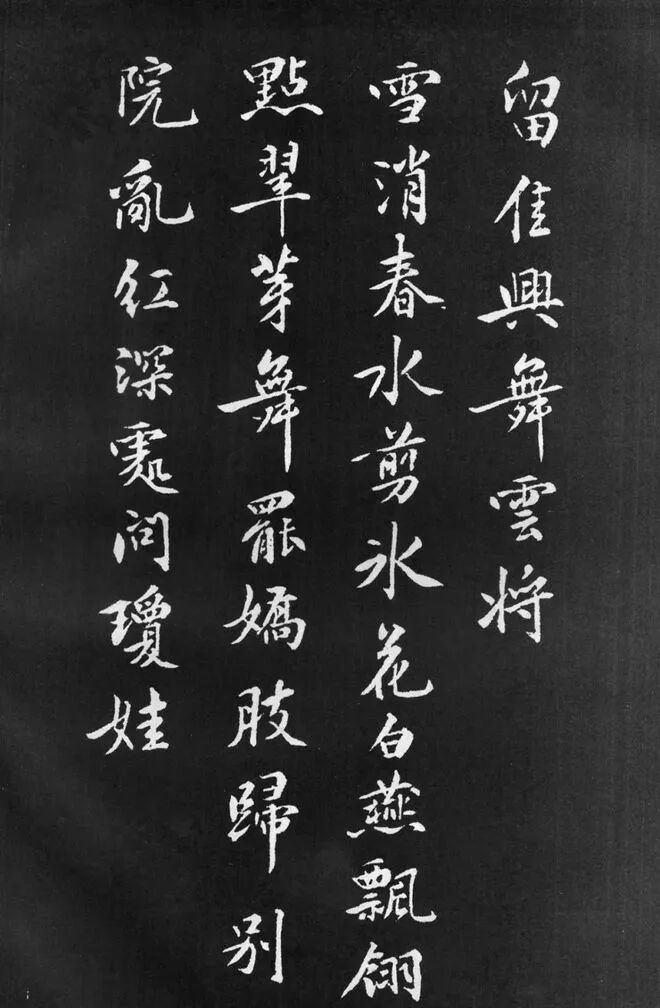 留佳興舞雲將
雪消春水剪氷花白燕飄翎
點翠芽舞罷嬌肢歸别
院亂紅深處問瓊娃